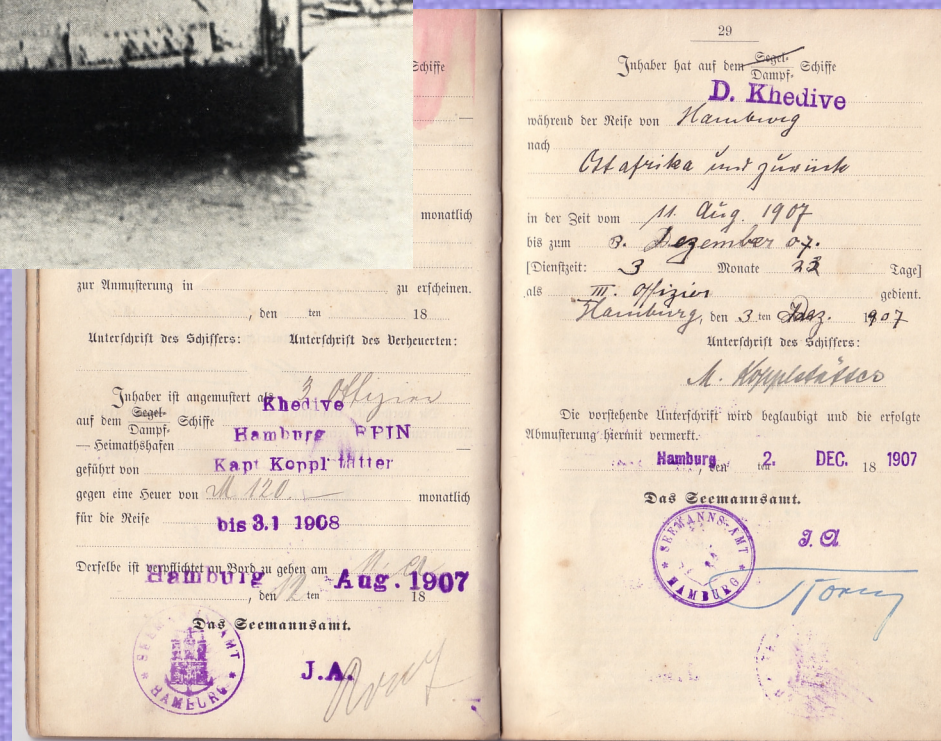 Schiffe
monatlich
zur Anmusterung in zu erscheinen.
, den ten 18
Unterschrift des Schiffers: Unterschrift des Verheuerten:
Inhaber ist angemustert als 3 Offizier
Khedive
auf dem Segel- Dampf- Schiffe
Hamburg RPIN
— Heimathshafen —
geführt von Kapt Koppl
gegen eine Heuer von M 120. — monatlich
für die Reise
bis 3.1 1908
Derselbe ist verpflichtet an Bord zu gehen am
Hamburg, den ten Aug. 1907 18
Das Seemannsamt.
SEEMANNS-AMT HAMBURG
J.A.
29
Inhaber hat auf dem Segel- Dampf- Schiffe
D. Khedive
während der Reise von Hamburg
nach
Ostafrika und zurück
in der Zeit vom 11. Aug. 1907
bis zum 3. Dezember 07.
[Dienstzeit: 3 Monate 23 Tage]
als III. Offizier gedient.
Hamburg, den 3 ten Dez. 1907
Unterschrift des Schiffers:
M. Kopplstätter
Die vorstehende Unterschrift wird beglaubigt und die erfolgte
Abmusterung hiermit vermerkt.
Hamburg, den 2. ten DEC. 18 1907
Das Seemannsamt.
SEEMANNS-AMT HAMBURG
J. A